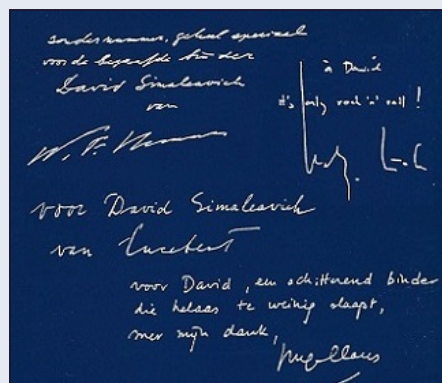 zonder nummer, geheel speciaal
voor de begaafde binder
David Simaleavich
van
W. F. Hermans
à David
it's only rock 'n' roll !
voor David Simaleavich
van Lucebert
voor David, een schitterend binder
die helaas te weinig slaapt,
met mijn dank,
Hugo Claus